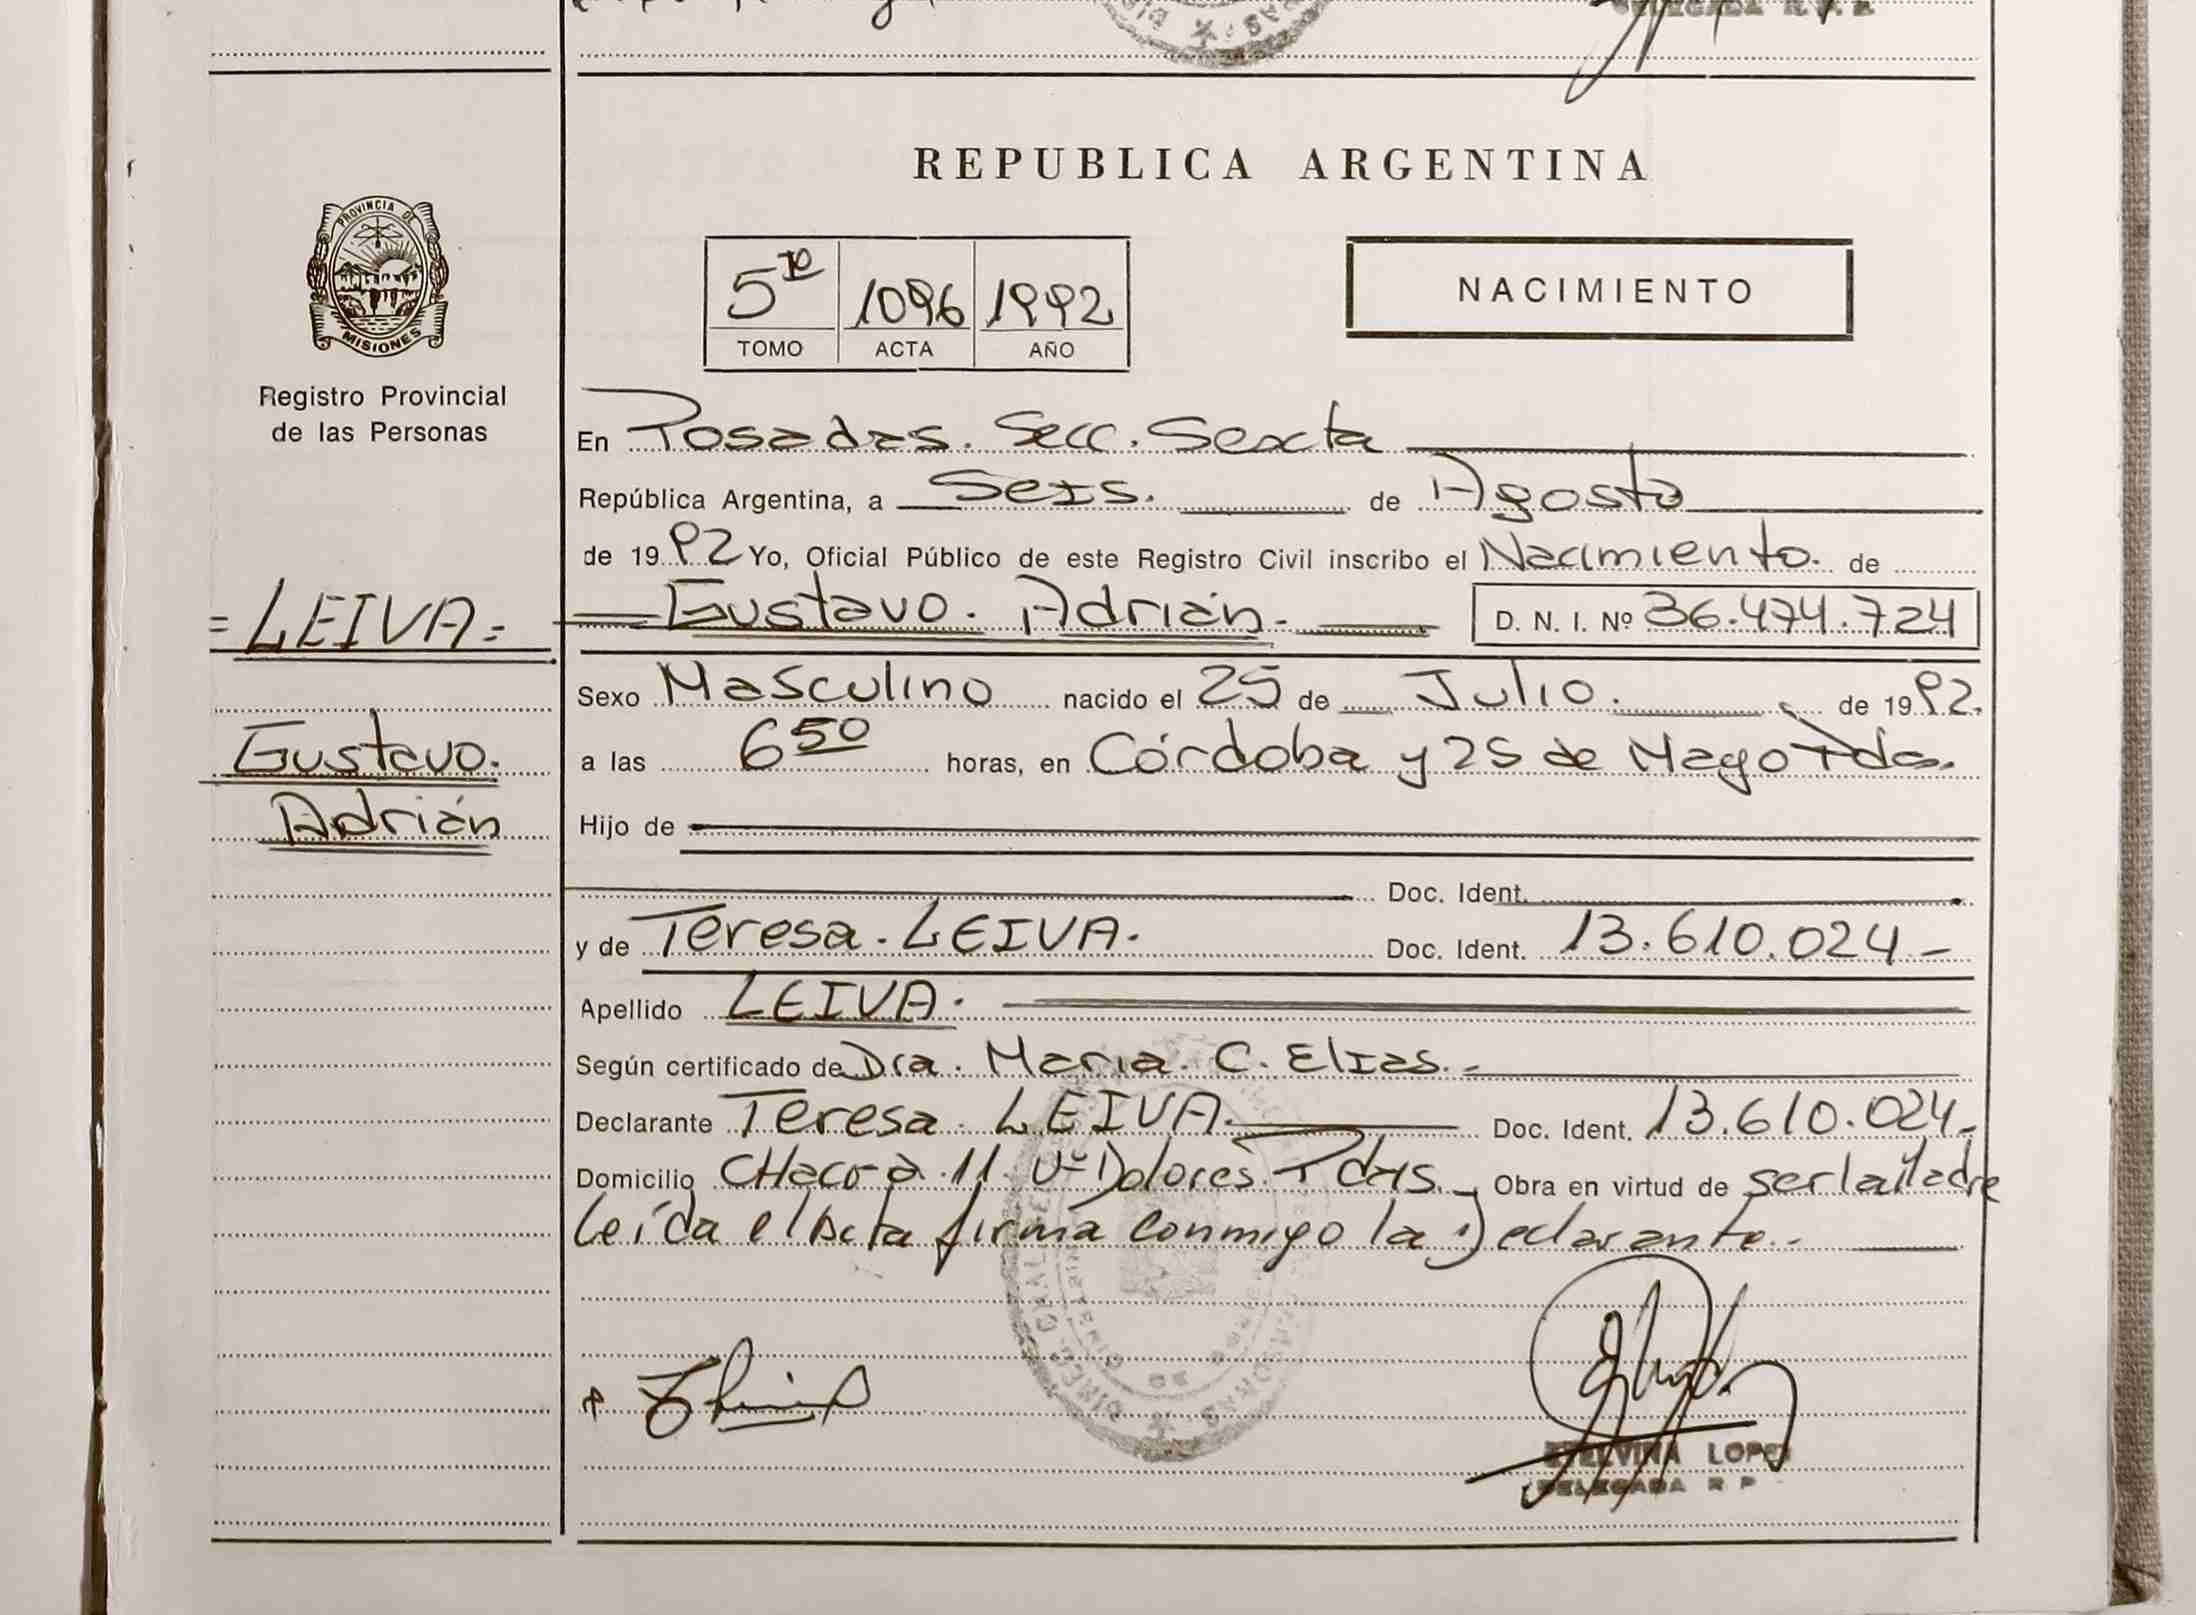 REPUBLICA ARGENTINA
PROVINCIA DE
MISIONES
Registro Provincial
de las Personas
5to 1096 1992
TOMO ACTA AÑO
NACIMIENTO
En Posadas. Secc. Sexta
República Argentina, a Seis. de Agosto
de 1992 Yo, Oficial Público de este Registro Civil inscribo el Nacimiento. de
= LEIVA. =
Gustavo. Adrián. D. N. I. Nº 36.474.724
Sexo Masculino nacido el 25 de Julio. de 1992.
Gustavo.
Adrián
a las 6 50 horas, en Córdoba y 25 de Mayo Pdas.
Hijo de
Doc. Ident.
y de Teresa. LEIVA. Doc. Ident. 13.610.024 -
Apellido LEIVA.
Según certificado de Dra. Maria. C. Elias. -
Declarante Teresa LEIVA. Doc. Ident. 13.610.024 -
Domicilio CHacra 11 Vª Dolores. Pdas. Obra en virtud de ser la Madre
Leída el Acta firma conmigo la Declarante. -
ETELVINA LOPEZ
DELEGADA R P